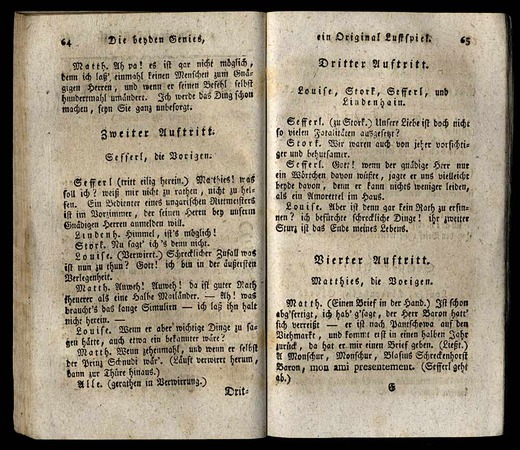 64 Die beyden Genies,
Matth. Ah pa! es ist gar nicht möglich,
denn ich laß' einmahl keinen Menschen zum Gnä-
gigen Herren, und wenn er seinen Befehl selbst
hundertmahl umändert. Ich werde das Ding schon
machen, seyn Sie ganz unbesorgt.
Zweiter Auftritt.
Sefferl, die Vorigen.
Sefferl (tritt eilig herein.) Mathies! was
soll ich? weiß mir nicht zu rathen, nicht zu hel-
fen. Ein Bedienter eines ungarischen Rittmeisters
ist im Vorzimmer, der seinen Herrn bey unserm
Gnädigen Herren anmelden will.
Lindenh. Himmel, ist's möglich!
Stork. Nu sagt' ich's denn nicht.
Louise. (Verwirrt.) Schrecklicher Zufall was
ist nun zu thun? Gott! ich bin in der äußersten
Verlegenheit.
Matth. Auweh! Auweh! da ist guter Rath
theuerer als eine Halbe Mailänder. — Ah! was
braucht's das lange Simulieren — ich laß ihn halt
nicht herein. —
Louise. Wenn er aber wichtige Dinge zu sa-
gen hätte, auch etwa ein bekannter wäre?
Matth. Wenn zehenmahl, und wenn er selbst
der Prinz Schnudi wär'. (Läuft verwirrt herum,
dann zur Thüre hinaus.)
Alle. (gerathen in Verwirrung.)
Drit-
ein Original Lustspiel. 65
Dritter Auftritt.
Louise, Stork, Sefferl, und
Lindenhain.
Sefferl. (zu Stork.) Unsere Liebe ist doch nicht
so vielen Fatalitäten ausgesetzt?
Stork. Wir waren auch von jeher vorsichti-
ger und behutsamer.
Sefferl. Gott! wenn der gnädige Herr nur
ein Wörtchen davon wüßte, jagte er uns vielleicht
beyde davon, denn er kann nichts weniger leiden,
als ein Amorettel im Haus.
Louise. Aber ist denn gar kein Rath zu ersin-
nen? ich befürchte schreckliche Dinge! ihr zweiter
Sturz ist das Ende meines Lebens.
Vierter Auftritt.
Matthies, die Vorigen.
Matth. (Einen Brief in der Hand.) Ist schon
abg'fertigt, ich hab' g'sagt, der Herr Baron hatt'
sich verreißt — er ist nach Pantschowa auf den
Viehmarkt, und kommt erst in einen halben Jahr
zurück, da hat er mir einen Brief geben. (Ließt.)
A Monschur, Monschur, Blasius Schreckenhorst
Baron, mon ami presentement. (Sefferl geht
ab.)